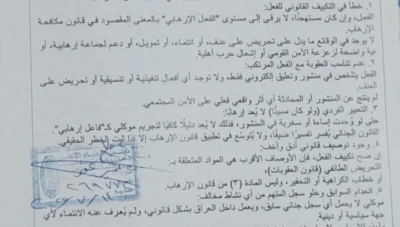 ١. خطأ في التكييف القانوني للفعل:
الفعل، وإن كان مستهجنًا، لا يرقى إلى مستوى "الفعل الإرهابي" بالمعنى المقصود في قانون مكافحة
الإرهاب.
لا يوجد في الوقائع ما يدل على تحريض على عنف، أو انتماء، أو تمويل، أو دعم لجماعة إرهابية، أو
نية واضحة لزعزعة الأمن القومي أو إشعال حرب أهلية.
٢. عدم تناسب العقوبة مع الفعل المرتكب:
الفعل يتلخص في منشور وتعليق إلكتروني فقط، ولا توجد أي أفعال تنفيذية أو تنسيقية أو تحريض على
العنف.
لم ينتج عن المنشور أو المحادثة أي أثر واقعي فعلي على الأمن المجتمعي.
٣. التعبير الفردي (ولو كان مسيئًا) لا يُعد إرهابًا:
حتى لو وُجدت إساءة أو سخرية في المنشور، فذلك لا يُعد دليلًا كافيًا لتجريم موكلي كـ"فاعل إرهابي".
القانون الجنائي يُفسر تفسيرًا ضيقًا، ولا يُتوسّع في تطبيق قانون الإرهاب إلا إذا ثبت الخطر الحقيقي.
٤. وجود توصيف قانوني أدق وأخف:
إن صح تكييف الفعل، فإن الأوصاف الأقرب هي المواد المتعلقة بـ:
التحريض الطائفي (قانون العقوبات)،
أو خطاب الكراهية أو التحقير، وليس المادة (٣) من قانون الإرهاب.
٥. انعدام السوابق وخلو سجل المتهم من أي نشاط مخالف:
موكلي لا يحمل أي سجل جنائي سابق، ويعمل داخل العراق بشكل قانوني، ولم يُعرف عنه الانتماء لأي
جهة سياسية أو دينية.